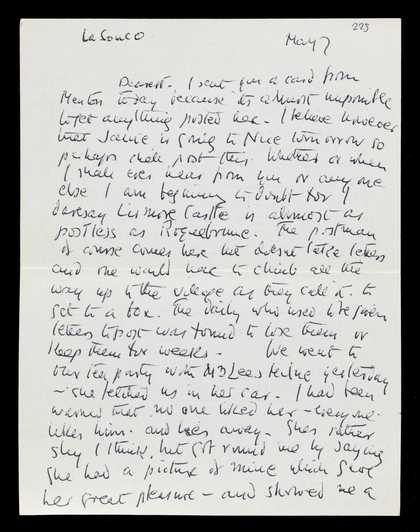 273
La Souco
May 7
Dearest. I sent you a card from
Menton today because its almost impossible
to get anything posted here. I believe however
that Janie is going to Nice tomorrow so
perhaps she'll post this. Whether or when
I shall ever hear from you or any one
else I am beginning to doubt for I
daresay Lismore Castle is almost as
postless as Roquebrune. The postman
of course comes here but doesnt take letters
and one would have to climb all the
way up to the village as they call it. to
get to a box. The daily who used to be given
letters to post was found to lose them or
keep them for weeks. We went to
our tea party with Mrs yesterday
– she fetched us in her car. I had been
warned that no one liked her – everyone
likes him. and hes away. Shes rather
shy I think, but got round me by saying
she had a picture of mine which gave
her great pleasure – and showed me a